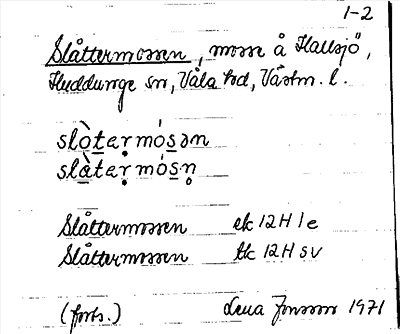 1-2
Slåttermossen, mosse å Hallsjö,
Huddunge sn, Våla hd, Västm. l.
slòtermósən
slàtermósn̥
Slåttermossen ek 12H 1e
Slåttermossen tk 12H SV
(forts.) Lena Jonsson 1971